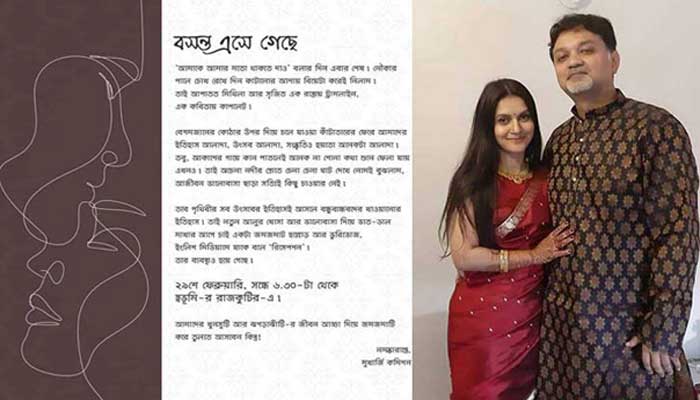 বসন্ত এসে গেছে
'আমাকে আমার মতো থাকতে দাও' বলার দিন এবার শেষ। নৌকার
পালে চোখ রেখে দিন কাটানোর আশায় বিয়েটা করেই নিলাম।
তাই আপাতত মিথিলা আর সৃজিত এক রাস্তায় ট্রামলাইন,
এক কবিতায় কাপলেট।
ইতিহাস আলাদা, উৎসব আলাদা, সংস্কৃতিও হয়তো অনেকটা আলাদা।
তবু, আকাশের গায়ে কান পাতলেই অনেক না শোনা কথা শুনে ফেলা যায়
এখনও। তাই অচেনা নদীর স্রোতে চেনা চেনা ঘাট দেখে নেমেই বুঝলাম,
আজীবন ভালোবাসা ছাড়া সত্যিই কিছু চাওয়ার নেই।
তবে পৃথিবীর সব উৎসবের ইতিহাসই আসলে বন্ধুবান্ধবদের খাওয়ানোর
ইতিহাস। তাই নতুন আলুর খোসা আর ভালোবাসা দিয়ে ভাত-ডাল
মাখার আগে চাই একটা জমজমাট হুল্লোড় আর ভুরিভোজ,
ইংলিশ মিডিয়ামে যাকে বলে 'রিসেপশন'।
তার ব্যবস্থাও হয়ে গেছে।
২৯শে ফেব্রুয়ারি, সন্ধে ৬.৩০-টা থেকে
স্বভূমি-র রাজকুটির-এ।
আমাদের খুনসুটি আর ঝগড়াঝাঁটি-র জীবন আড্ডা দিয়ে জমজমাটি
করে তুলতে আসবেন কিন্তু!
নমস্কারান্তে,
মুখার্জি কমিশন